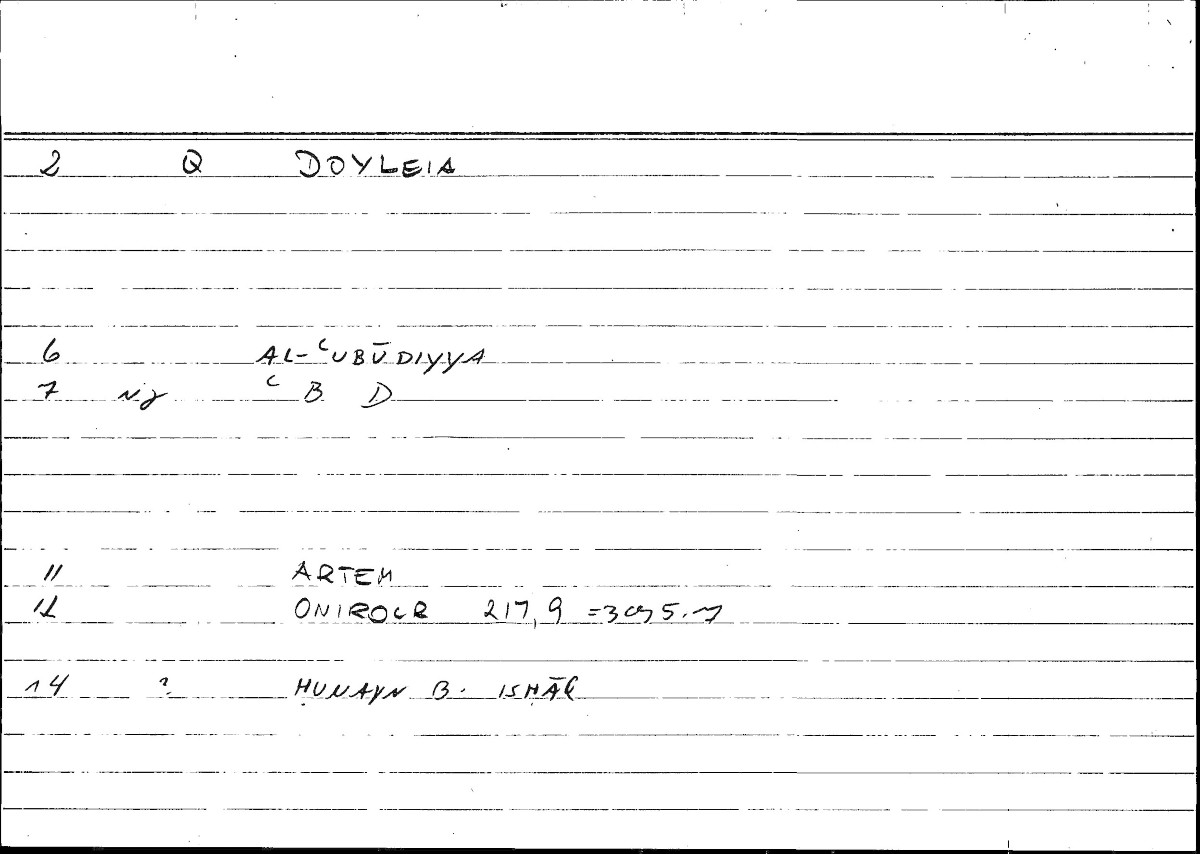 2 Q DOYLEIA
6 AL-ʿUBŪDIYYA
7 ʿ B D
11 ARTEM
12 ONIROCR 217,9
14 ? ḤUNAYN B. ISḤĀQ